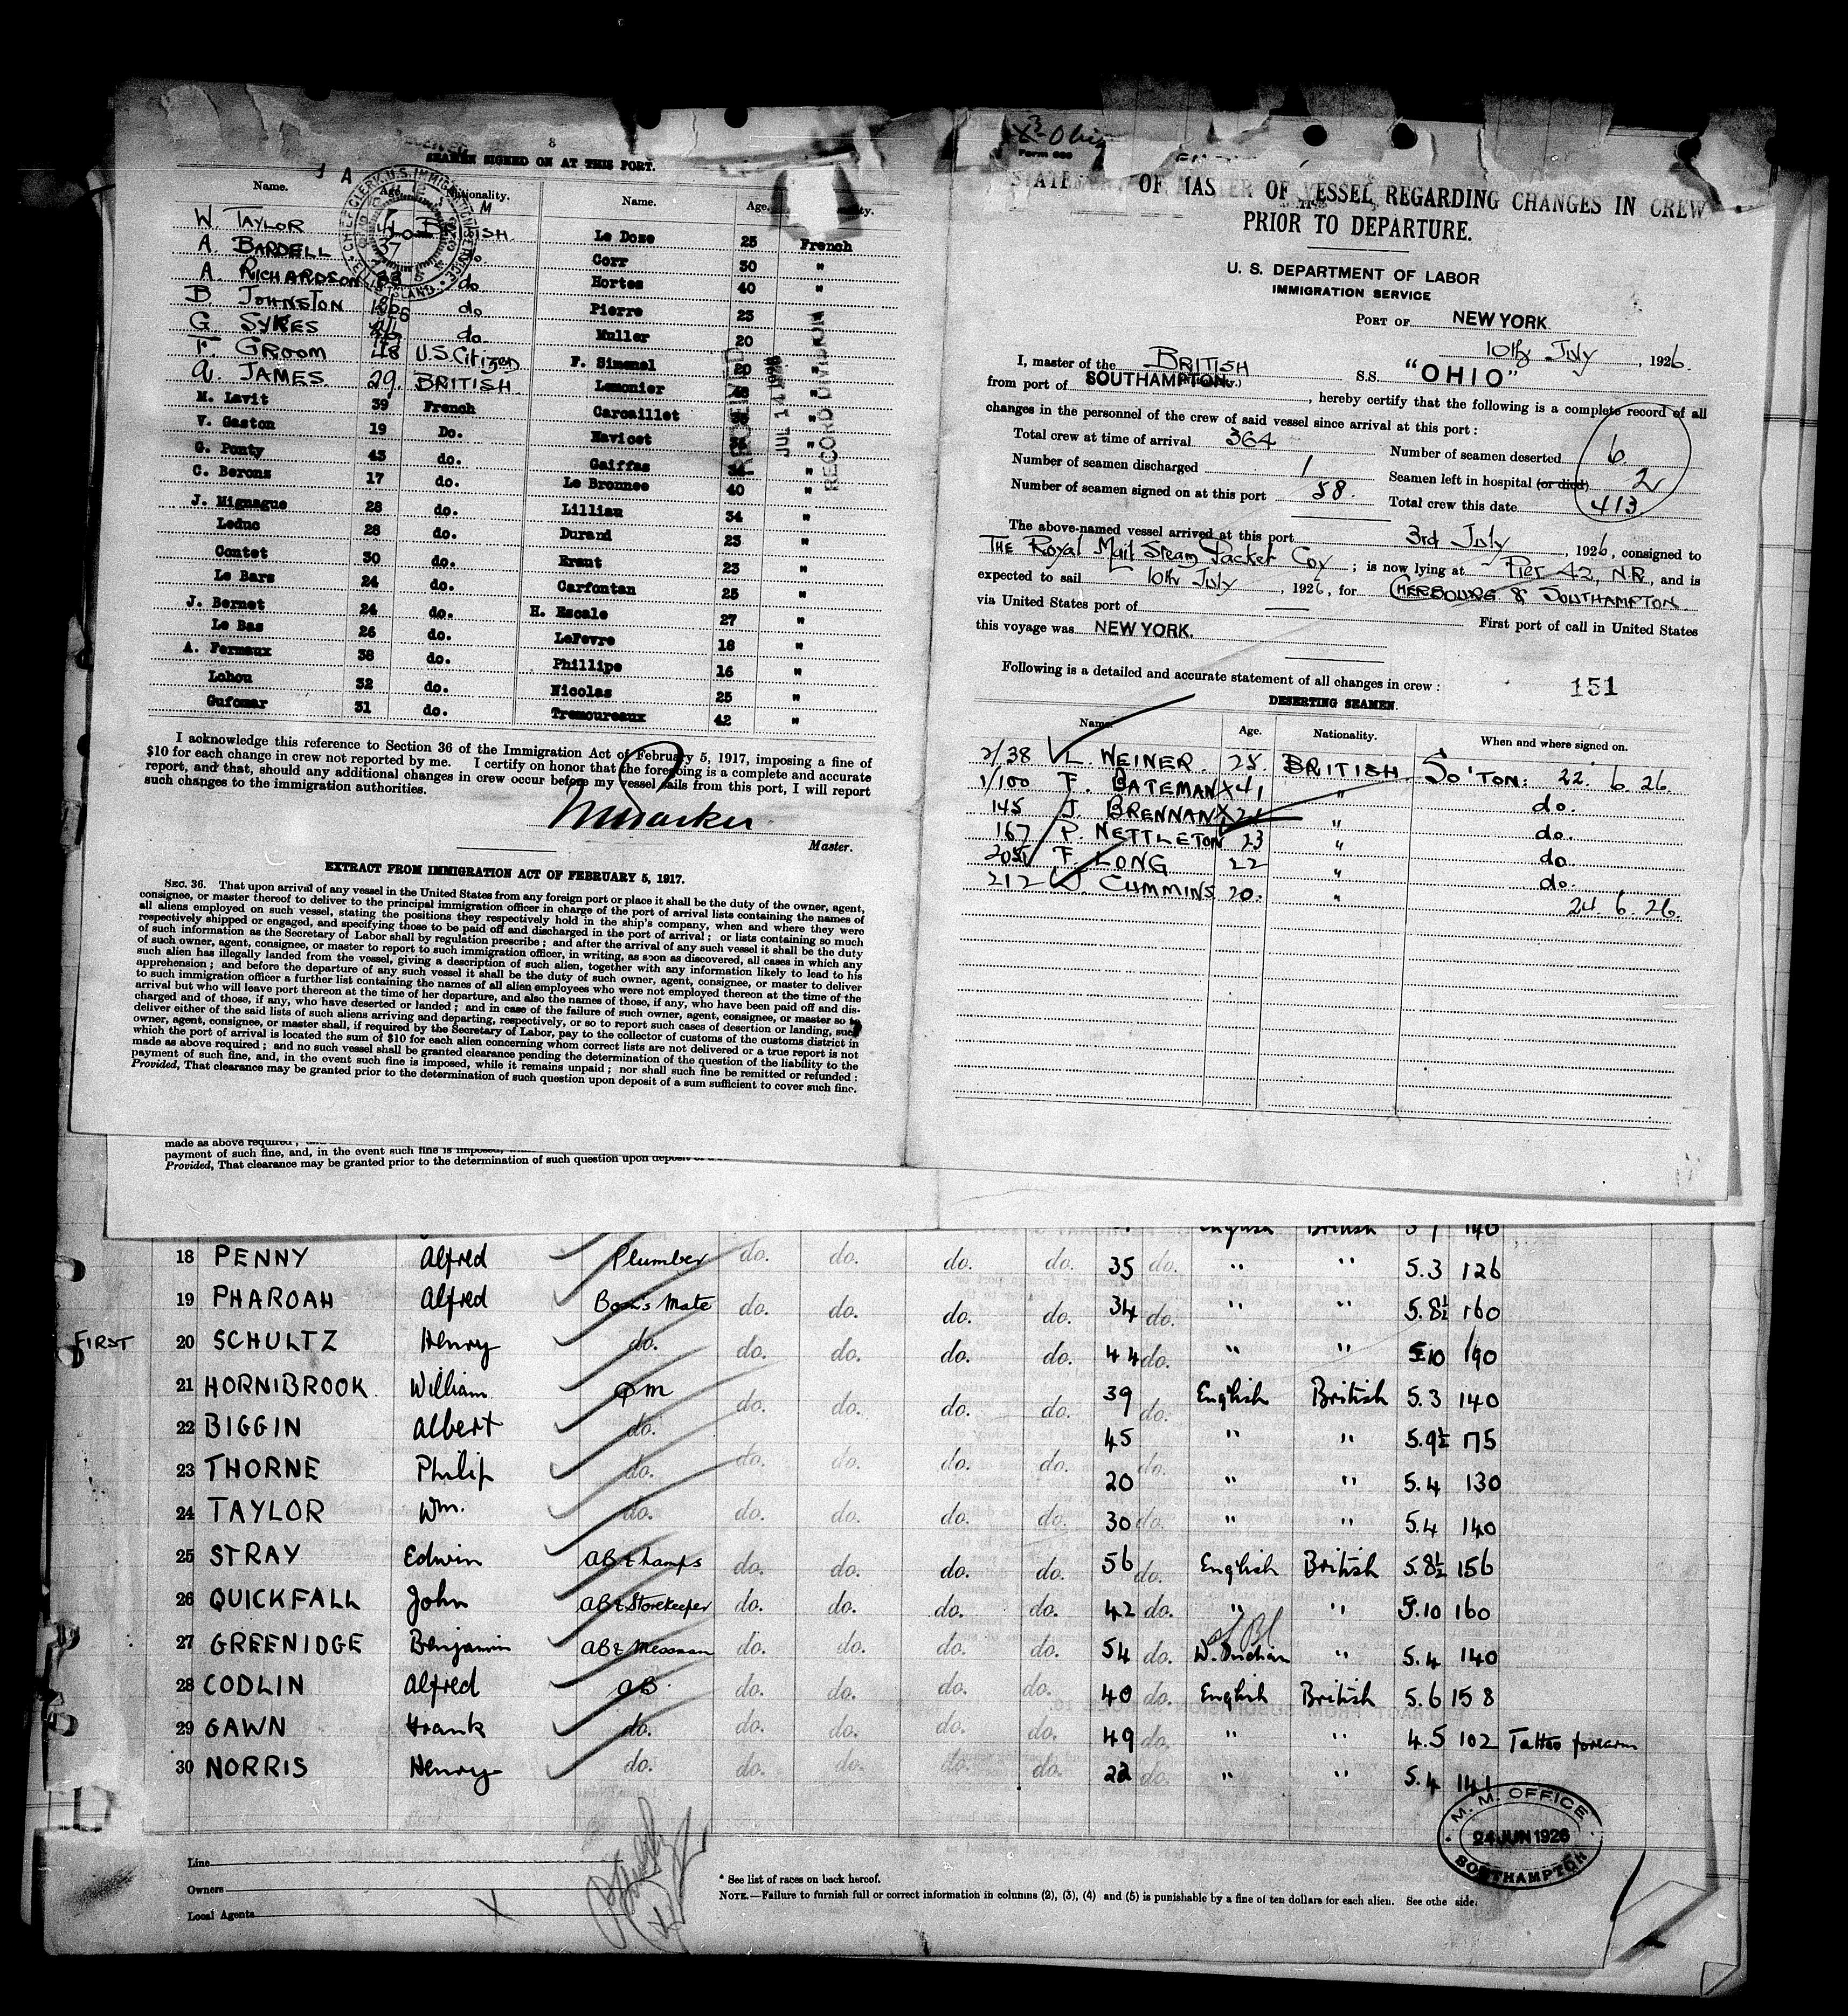 8
SEAMEN SIGNED ON AT THIS PORT.
Name. Age. Nationality. Name. Age.
W TAYLOR BRITISH. Le Doze 25 French
A. BARDELL 37 do Corr 30 "
A RICHARDSON 38 do Hortes 40 "
B JOHNSTON do Pierre 23 "
G SYKES do. Muller 20 "
F. GROOM 48 U.S. Citizen F. Simenel 20 "
A. JAMES. 29. BRITISH Lemonier "
M. Lavit 39 French Carcaillet "
V. Gaston 19 Do. Navicet "
G. Ponty 43 do. Gaiffas "
C. Berons 17 do. Le Bronnec 40 "
J. Mignague 28 do. Lilliau 34 "
Leduc 28 do. Durand 23 "
Contet 30 do. Eraut 23 "
Le Bars 24 do. Carfontan 25 "
J. Bernet 24 do. H. Escale 27 "
Le Bas 26 do. LeFevre 18 "
A. Fermaux 38 do. Phillipe 16 "
Lohou 32 do. Nicolas 25 "
Gufomar 31 do. Tremoureaux 42 "
RECEIVED
JUL 14 1926
RECORD DIVISION
I acknowledge this reference to Section 36 of the Immigration Act of February 5, 1917, imposing a fine of
$10 for each change in crew not reported by me. I certify on honor that the foregoing is a complete and accurate
report, and that, should any additional changes in crew occur before my vessel sails from this port, I will report
such changes to the immigration authorities.
Master.
EXTRACT FROM IMMIGRATION ACT OF FEBRUARY 5, 1917.
SEC. 36. That upon arrival of any vessel in the United States from any foreign port or place it shall be the duty of the owner, agent,
consignee, or master thereof to deliver to the principal immigration officer in charge of the port of arrival lists containing the names of
all aliens employed on such vessel, stating the positions they respectively hold in the ship's company, when and where they were
respectively shipped or engaged, and specifying those to be paid off and discharged in the port of arrival; or lists containing so much
of such information as the Secretary of Labor shall by regulation prescribe; and after the arrival of any such vessel it shall be the duty
of such owner, agent, consignee, or master to report to such immigration officer, in writing, as soon as discovered, all cases in which any
such alien has illegally landed from the vessel, giving a description of such alien, together with any information likely to lead to his
apprehension; and before the departure of any such vessel it shall be the duty of such owner, agent, consignee, or master to deliver
to such immigration officer a further list containing the names of all alien employees who were not employed thereon at the time of the
arrival but who will leave port thereon at the time of her departure, and also the names of those, if any, who have been paid off and dis-
charged and of those, if any, who have deserted or landed; and in case of the failure of such owner, agent, consignee, or master so to
deliver either of the said lists of such aliens arriving and departing, respectively, or so to report such cases of desertion or landing, such
owner, agent, consignee, or master shall, if required by the Secretary of Labor, pay to the collector of customs of the customs district in
which the port of arrival is located the sum of $10 for each alien concerning whom correct lists are not delivered or a true report is not
made as above required; and no such vessel shall be granted clearance pending the determination of the question of the liability to the
payment of such fine, and, in the event such fine is imposed, while it remains unpaid; nor shall such fine be remitted or refunded:
Provided, That clearance may be granted prior to the determination of such question upon deposit of a sum sufficient to cover such fine.
Form 689
STATEMENT OF MASTER OF VESSEL REGARDING CHANGES IN CREW
PRIOR TO DEPARTURE.
U. S. DEPARTMENT OF LABOR
IMMIGRATION SERVICE
PORT OF NEW YORK
10th July, 1926.
I, master of the BRITISH S.S. "OHIO"
from port of SOUTHAMPTON, hereby certify that the following is a complete record of all
changes in the personnel of the crew of said vessel since arrival at this port:
Total crew at time of arrival 364 Number of seamen deserted 6
Number of seamen discharged 1 Seamen left in hospital (or died) 2
Number of seamen signed on at this port 58. Total crew this date 413
The above-named vessel arrived at this port 3rd July, 1926, consigned to
THE Royal Mail Steam Packet Coy; is now lying at Pier 42, N.R., and is
expected to sail 10th July, 1926, for CHERBOURG & SOUTHAMPTON
via United States port of First port of call in United States
this voyage was NEW YORK.
Following is a detailed and accurate statement of all changes in crew:
151
DESERTING SEAMEN.
Name. Age. Nationality. When and where signed on.
2/38 L. WEINER. 25. BRITISH. SO'TON: 22. 6. 26.
1/100 F. BATEMAN X 41 " do.
145 J. BRENNAN X 21 " do.
167 P. NETTLETON 23 " do
205 F. LONG 22 " do.
212 J. CUMMINS 20. " 24. 6. 26.
made as above required; and
payment of such fine, and, in the event such fine is imposed,
Provided, That clearance may be granted prior to the determination of such question upon deposit of
English British 140
18 PENNY Alfred Plumber do. do. do. do. 35 do. " " 5.3 126
19 PHAROAH Alfred Bosn's Mate do. do. do. do. 34 do. " " 5.8½ 160
FIRST 20 SCHULTZ Henry do. do. do. do. do. 44 do. " " 5.10 190
21 HORNIBROOK William QM do. do. do. do. 39 do. English British 5.3 140
22 BIGGIN Albert do. 45 " " 5.9½ 175
23 THORNE Philip do. do. do. do. do. 20 do. " " 5.4 130
24 TAYLOR Wm. do. do. do. do. do. 30 do. " " 5.4 140
25 STRAY Edwin AB & Lamps do. do. do. do. 56 do. English British 5.8½ 156
26 QUICKFALL John AB & Storekeeper do. do. do. do. 42 do. " " 5.10 160
27 GREENIDGE Benjamin AB & Messman do. do. do. do. 54 do. W. Indian " 5.4 140
28 CODLIN Alfred AB do. do. do. do. 40 do. English British 5.6 158
29 GAWN Frank do. do. do. do. do. 49 do. " " 4.5 102 Tattoo forearm
30 NORRIS Henry do. do. do. do. do. 22 do. " " 5.4 141
M. M. OFFICE
24 JUN 1926
SOUTHAMPTON
Line
Owners
Local Agents
* See list of races on back hereof.
NOTE.—Failure to furnish full or correct information in columns (2), (3), (4) and (5) is punishable by a fine of ten dollars for each alien. See othe side.